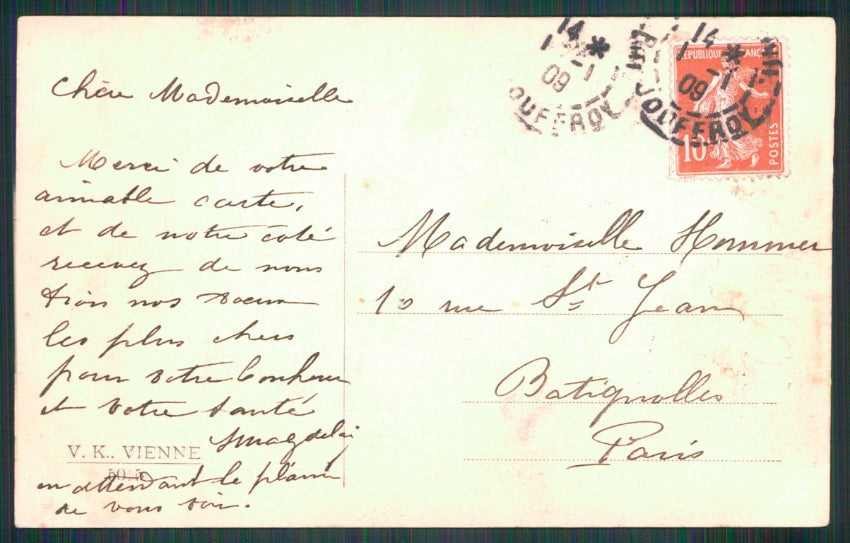 Chère Mademoiselle
Merci de votre
aimable carte,
et de notre coté
recevez de nous
tion nos voeux
les plus chers
pour votre bonheur
et votre santé
en attendant le plaisir
de vous voir.
V. K., VIENNE
Mademoiselle Hommer
10 rue St Jean
Batignolles
Paris
14 *
1 -1
09
JOUFFROY
14 *
1 -1
09
JOUFFROY
REPUBLIQUE FRANCAISE
10
POSTES